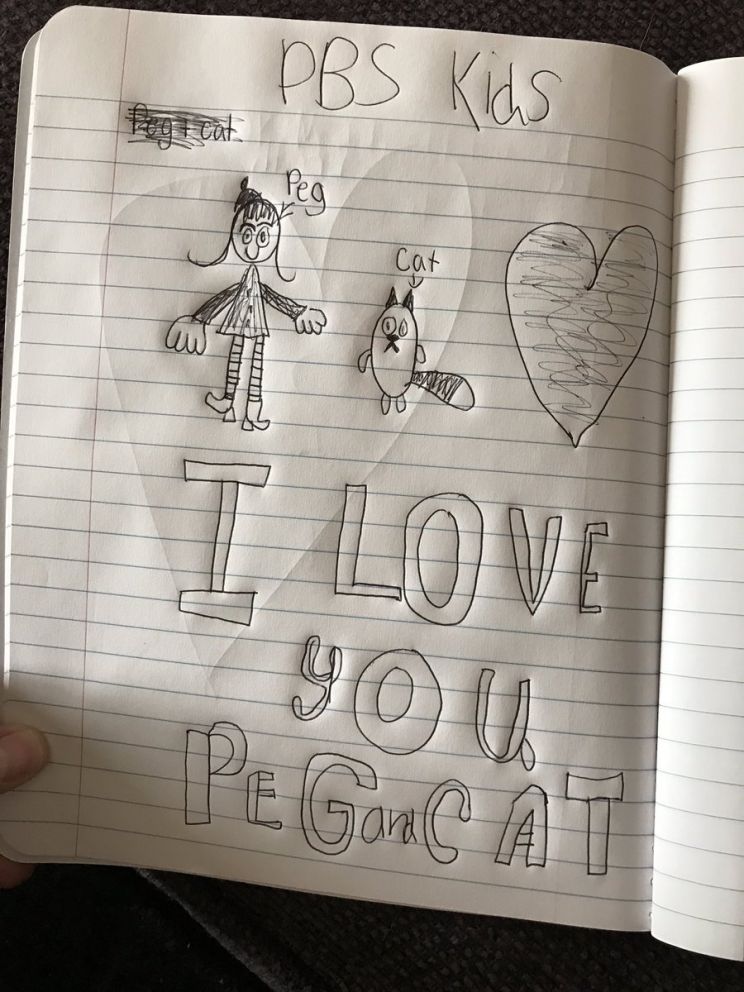 PBS Kids
Peg + cat
Peg
Cat
I LOVE
YOU
PEG and CAT